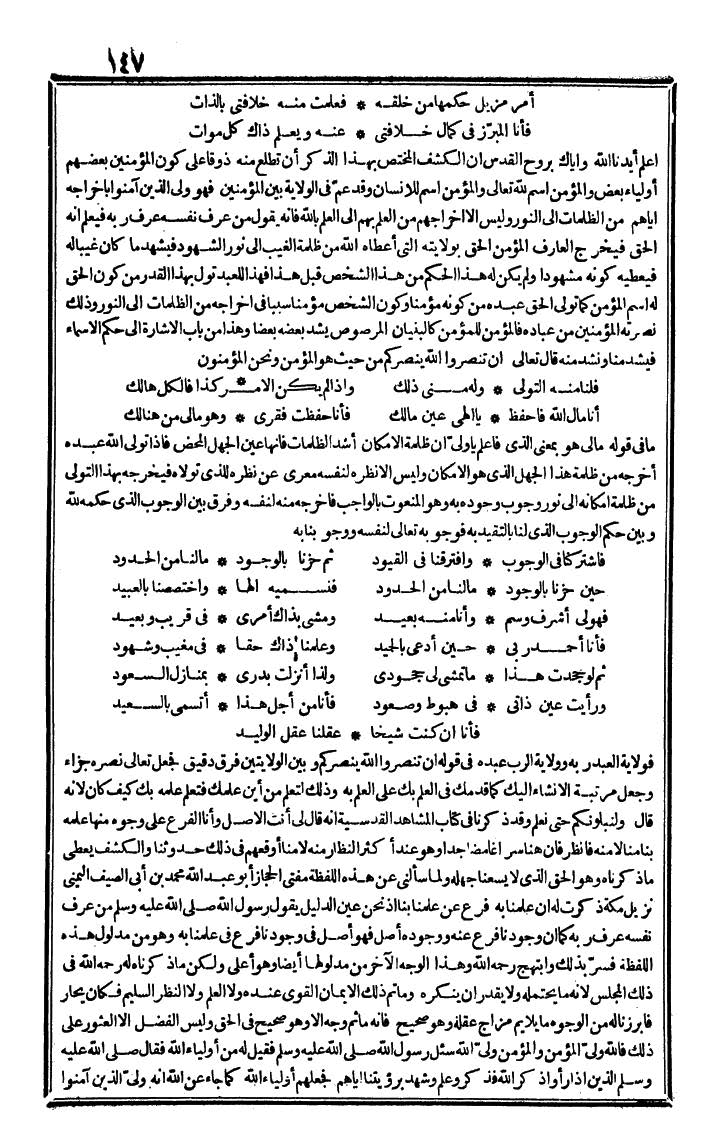 ١٤٧
أمر مزيل حكمها من خلقه * فعلمت منه خلافتى بالذات
فأنا المبرّز فى كمال خلافتى * عنه ويعلم ذاك كل موات
اعلم أيدنا الله واياك بروح القدس ان الكشف المختص بهذا الذكر أن تطلع منه ذوقا على كون المؤمنين بعضهم
أولياء بعض والمؤمن اسم لله تعالى والمؤمن اسم للانسان وقد عمّ فى الولاية بين المؤمنين فهو ولى الذين آمنوا باخراجه
اياهم من الظلمات الى النور وليس الا اخراجهم من العلم بهم الى العلم بالله فانه يقول من عرف نفسه عرف ربه فيعلم انه
الحق فيخرج العارف المؤمن الحق بولايته التى أعطاه الله من ظلمة الغيب الى نور الشهود فيشهد ما كان غيبا له
فيعطيه كونه مشهودا ولم يكن له هذا الحكم من هذا الشخص قبل هذا فهذا للعبد تول بهذا القدر من كون الحق
له اسم المؤمن كما تولى الحق عبده من كونه مؤمنا وكون الشخص مؤمنا سببا فى اخراجه من الظلمات الى النور وذلك
نصرته المؤمنين من عباده فالمؤمن للمؤمن كالبنيان المرصوص يشد بعضه بعضا وهذا من باب الاشارة الى حكم الاسماء
فيشد منا ونشد منه قال تعالى ان تنصروا الله ينصركم من حيث هو المؤمن ونحن المؤمنون
فلنا منه التولى * وله منى ذلك واذا لم يكن الامر * كذا فالكل هالك
أنا مال الله فاحفظ * يا الهى عين مالك فأنا حفظت فقرى * وهو مالى من هنالك
ما فى قوله مالى هو بمعنى الذى فاعلم ياولى ان ظلمة الامكان أشد الظلمات فانها عين الجهل المحض فاذا تولى الله عبده
أخرجه من ظلمة هذا الجهل الذى هو الامكان وليس الا نظره لنفسه معرى عن نظره للذى تولاه فيخرجه بهذا التولى
من ظلمة امكانه الى نور وجوب وجوده به وهو المنعوت بالواجب فاخرجه منه لنفسه وفرق بين الوجوب الذى حكمه لله
وبين حكم الوجوب الذى لنا بالتقييد به فوجوبه تعالى لنفسه ووجوبنا به
فاشتركنا فى الوجوب * وافترقنا فى القيود ثم حزنا بالوجود * مالنا من الحدود
حين حزنا بالوجود * مالنا من الحدود فنسميه الها * واختصصنا بالعبيد
فهو لى أشرف وسم * وأنا منه بعيد ومشى بذاك أمرى * فى قريب وبعيد
فأنا أحمد ربى * حين أدعى بالجيد وعلمنا ذاك حقا * فى مغيب وشهود
ثم لو جحدت هذا * ما تمشى لى جحودى ولذا أنزلت بدرى * بمنازل السعود
ورأيت عين ذاتى * فى هبوط وصعود فأنا من أجل هذا * أتسمى بالسعيد
فأنا ان كنت شيخا * عقلنا عقل الوليد
فولاية العبد ربه وولاية الرب عبده فى قوله ان تنصروا الله ينصركم وبين الولايتين فرق دقيق فجعل تعالى نصره جزاء
وجعل مرتبة الانشاء اليك كما قدمك فى العلم بك على العلم به وذلك لتعلم من أين علمك فتعلم علمه بك كيف كان لانه
قال ولنبلونكم حتى نعلم وقد ذكرنا فى كتاب المشاهد القدسية انه قال لى أنت الاصل وأنا الفرع على وجوه منها علمه
بنا منا لا منه فانظر فان هنا سرا غامضا جدا وهو عند أكثر النظار منه لا منا أوقعهم فى ذلك حدوثنا والكشف يعطى
ما ذكرناه وهو الحق الذى لا يسعنا جهله ولما سألنى عن هذه اللفظة مفتى الحجاز أبو عبد الله محمد بن أبى الصيف اليمنى
نزيل مكة ذكرت له ان علمنا به فرع عن علمنا بنا اذ نحن عين الدليل يقول رسول الله صلى الله عليه وسلم من عرف
نفسه عرف ربه كما ان وجودنا فرع عنه ووجوده أصل فهو أصل فى وجودنا فرع فى علمنا به وهو من مدلول هذه
اللفظة فسرّ بذلك وابتهج رحمه الله وهذا الوجه الآخر من مدلولها أيضا وهو أعلى ولكن ما ذكرناه له رحمه الله فى
ذلك المجلس لانه ما يحتمله ولا يقدر ان ينكره وما تم ذلك الايمان القوى عنده ولا العلم ولا النظر السليم فكان يحار
فابرزنا له من الوجوه ما يلايم مزاج عقله وهو صحيح فانه ماثم وجه الا وهو صحيح فى الحق وليس الفضل الا العثور على
ذلك فالله ولىّ المؤمن والمؤمن ولىّ الله سئل رسول الله صلى الله عليه وسلم فقيل له من أولياء الله فقال صلى الله عليه
وسلم الذين اذا رأوا ذكر الله فذكر وعلم وشهد برؤيتنا اياهم فجعلهم أولياء الله كما جاء عن الله انه ولىّ الذين آمنوا